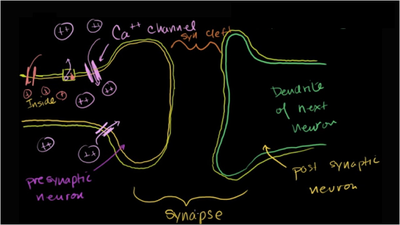 ++
++
Ca++ channel
syn cleft
++
++
Inside
++
++
++
Dendrite
of next
neuron
presynaptic
neuron
post synaptic
neuron
Synapse